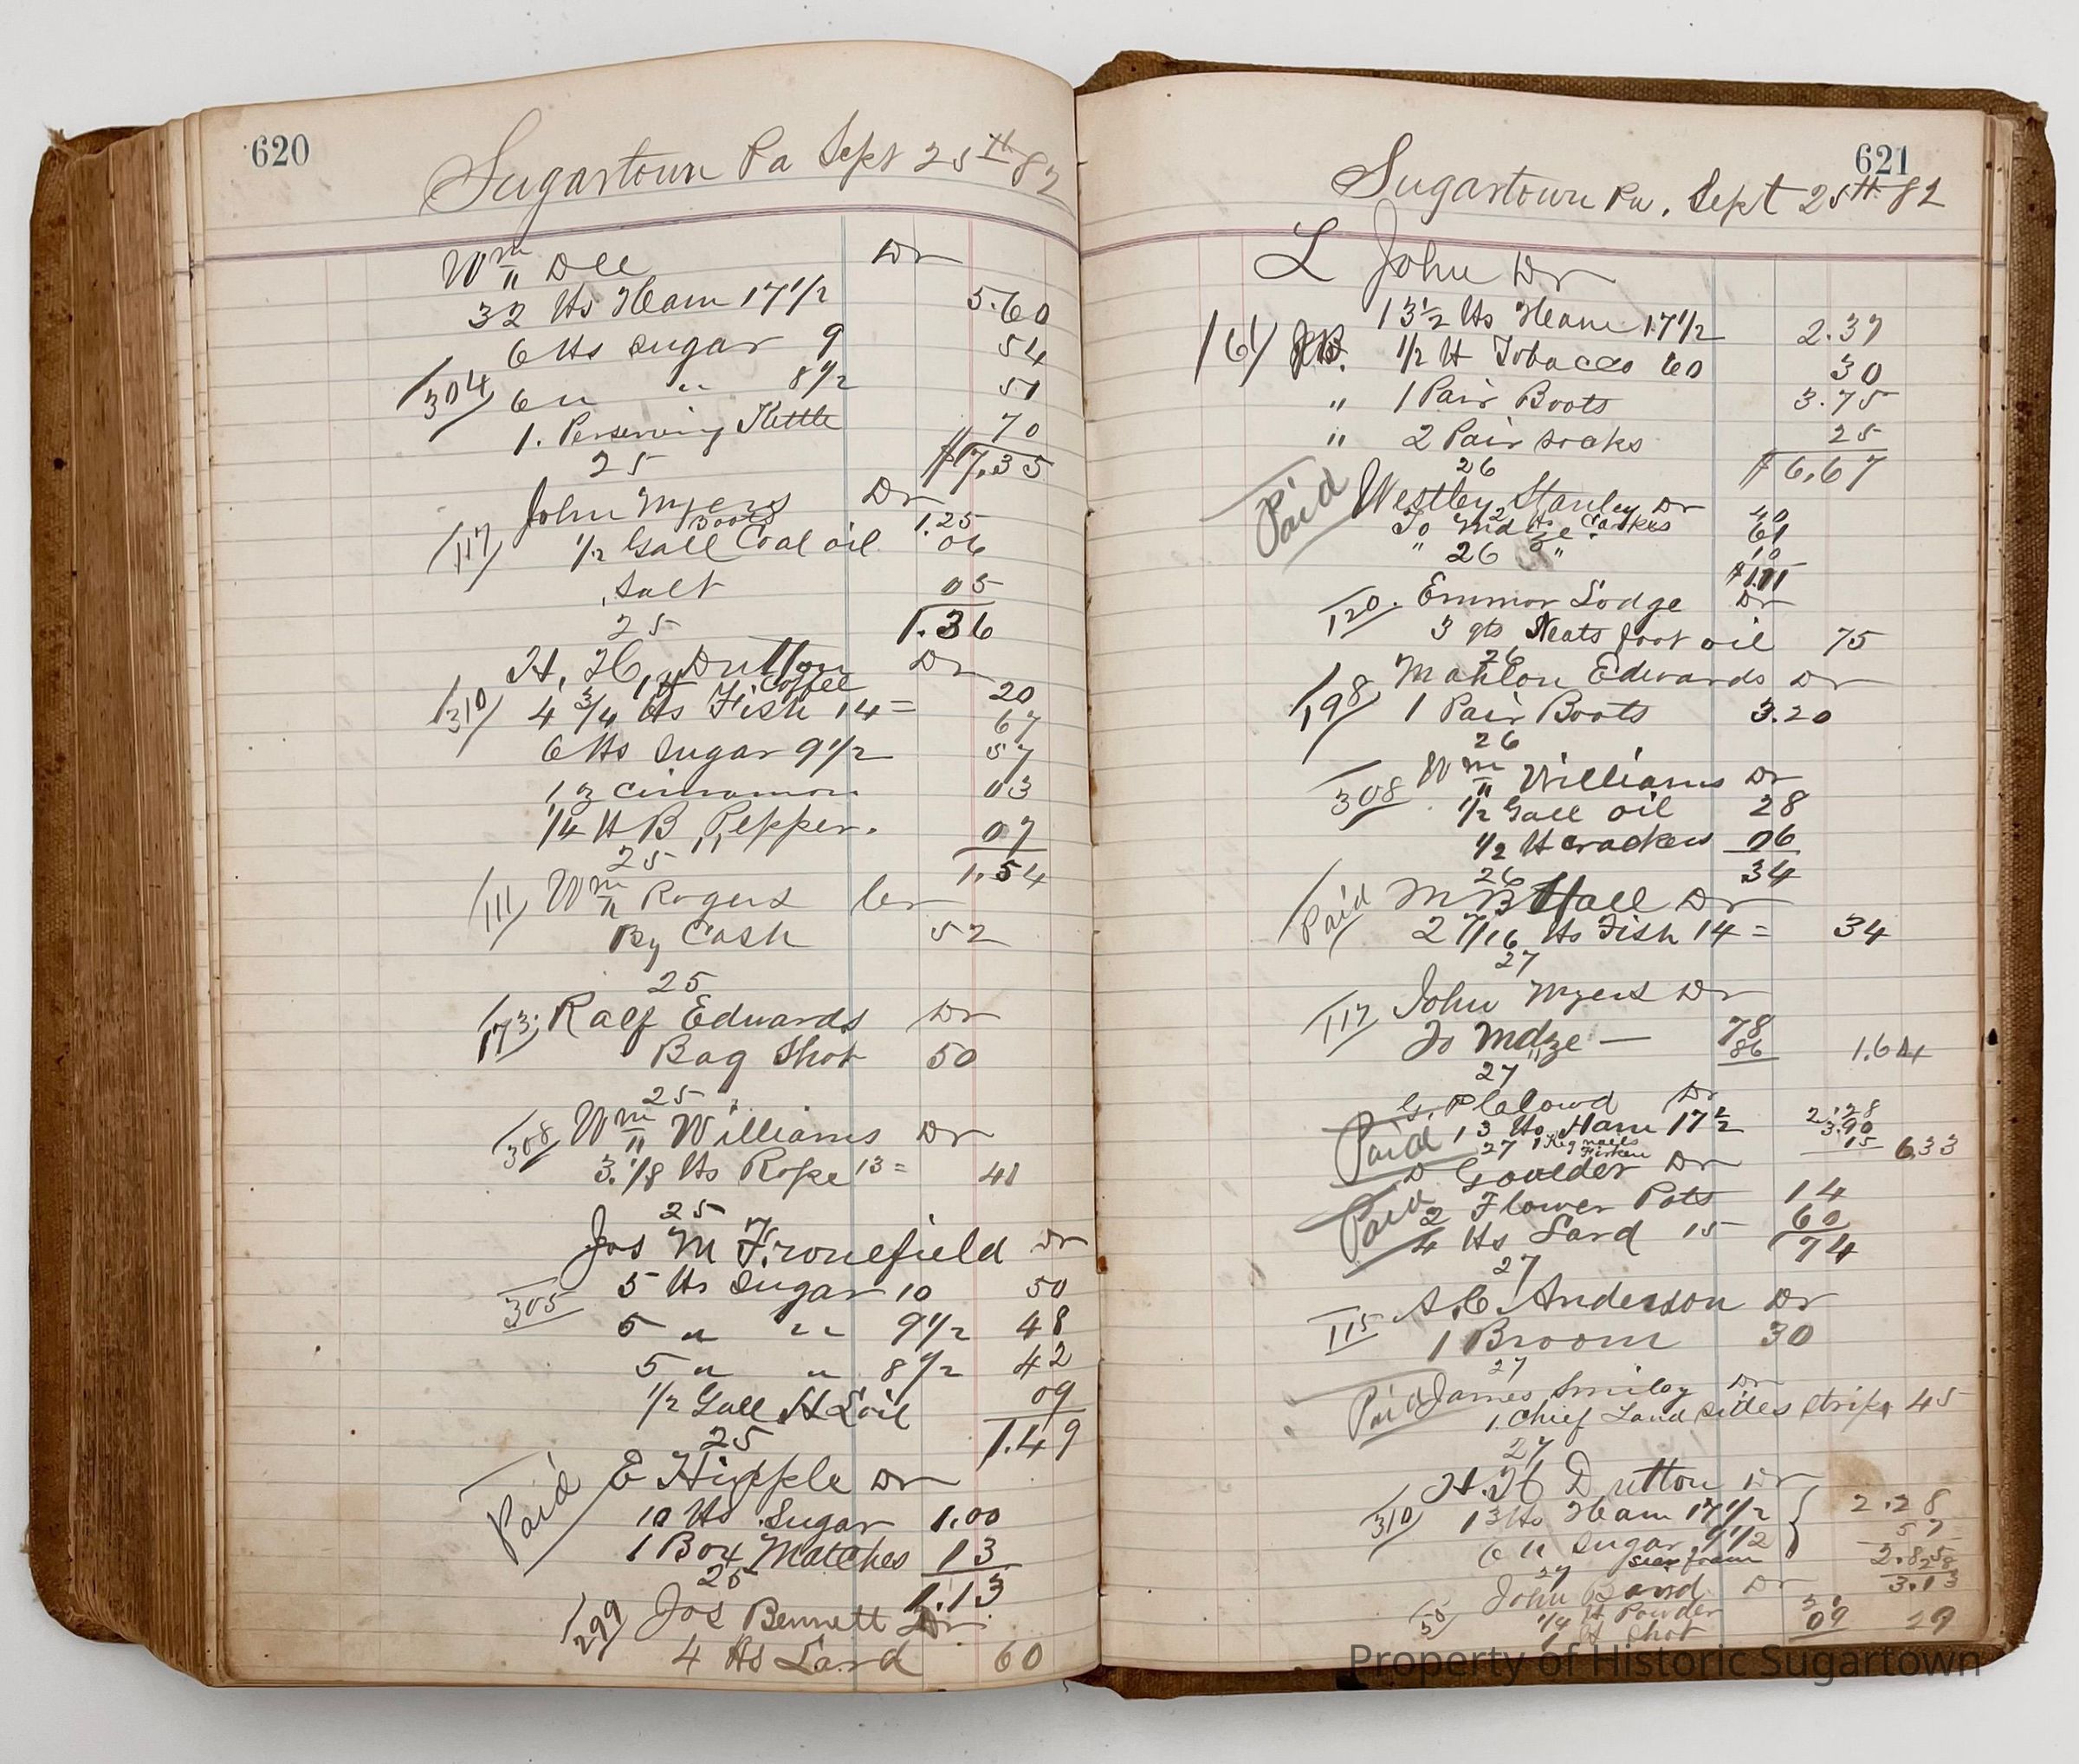 620
Sugartown Pa Sept 25th 82
Wm Dee Dr
32 lbs Ham 17 1/2 5.60
6 lbs Sugar 9 54
304 6 " " 8 1/2 51
1. Perserving Kettle 70
25 $7.35
John Myers Dr
Boots 1.25
117 1/2 Gall Coal oil 06
Salt 05
25 1.36
H. H. Dutton Dr
1 lb Coffee 20
310 4 3/4 lbs Fish 14 = 67
6 lbs Sugar 9 1/2 57
1 oz Cinnamon 03
1/4 lb B. Pepper. 07
25 1.54
111 Wm Rogers Cr
By Cash 52
25
173 Ralf Edwards Dr
Bag Shot 50
25
308 Wm Williams Dr
3. 1/8 lbs Rope 13 = 41
25
Jos M Fronefield Dr
305 5 lbs Sugar 10 50
5 " " 9 1/2 48
5 " " 8 1/2 42
1/2 Gall H L oil 09
25 1.49
Paid E Hipple Dr
10 lbs Sugar 1.00
1 Box Matches 13
25 1.13
299 Jos Bennett Dr
4 lbs Lard 60
621
Sugartown Pa. Sept 25th 82
L John Dr
13 1/2 lbs Ham 17 1/2 2.37
161 1/2 lb Tobacco 60 30
" 1 Pair Boots 3.75
" 2 Pair socks 25
26 $6.67
Paid Westley Stanley Dr
To Mdze. 2 lbs 40
61
" 26 " 10
120. Emmor Lodge Dr
3 qts Neats foot oil 75
26
198 Mahlon Edwards Dr
1 Pair Boots 3.20
26
308 Wm Williams Dr
1/2 Gall oil 28
1/2 lb crackers 06
26 34
Paid M B Hall Dr
2 7/16 lbs Fish 14 = 34
27
117 John Myers Dr
To Mdze — 78
86 1.64
27
Paid Dr
13 lbs Ham 17 1/2 2.28
1 Keg nails 3.90
27 Firken 15 6.33
Paid D Goulder Dr
2 Flower Pots 14
4 lbs Lard 15 60
27 74
115 A. C. Anderson Dr
1 Broom 30
27
Paid James Smiley Dr
1. Chief Land sides strip 45
27
H. H Dutton Dr
310 13 lbs Ham 17 1/2 2.28
6 " Sugar 9 1/2 57
2.85
27 28
3.13
John Baird Dr
1/4 lb Powder
1 lb Shot 09 29
Property of Historic Sugartown